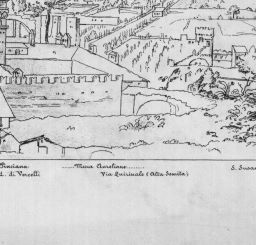 Pinciana ........ Mura Aureliane ........ S. Susan
d. di Vercelli Via Quirinale (Alta Semita)